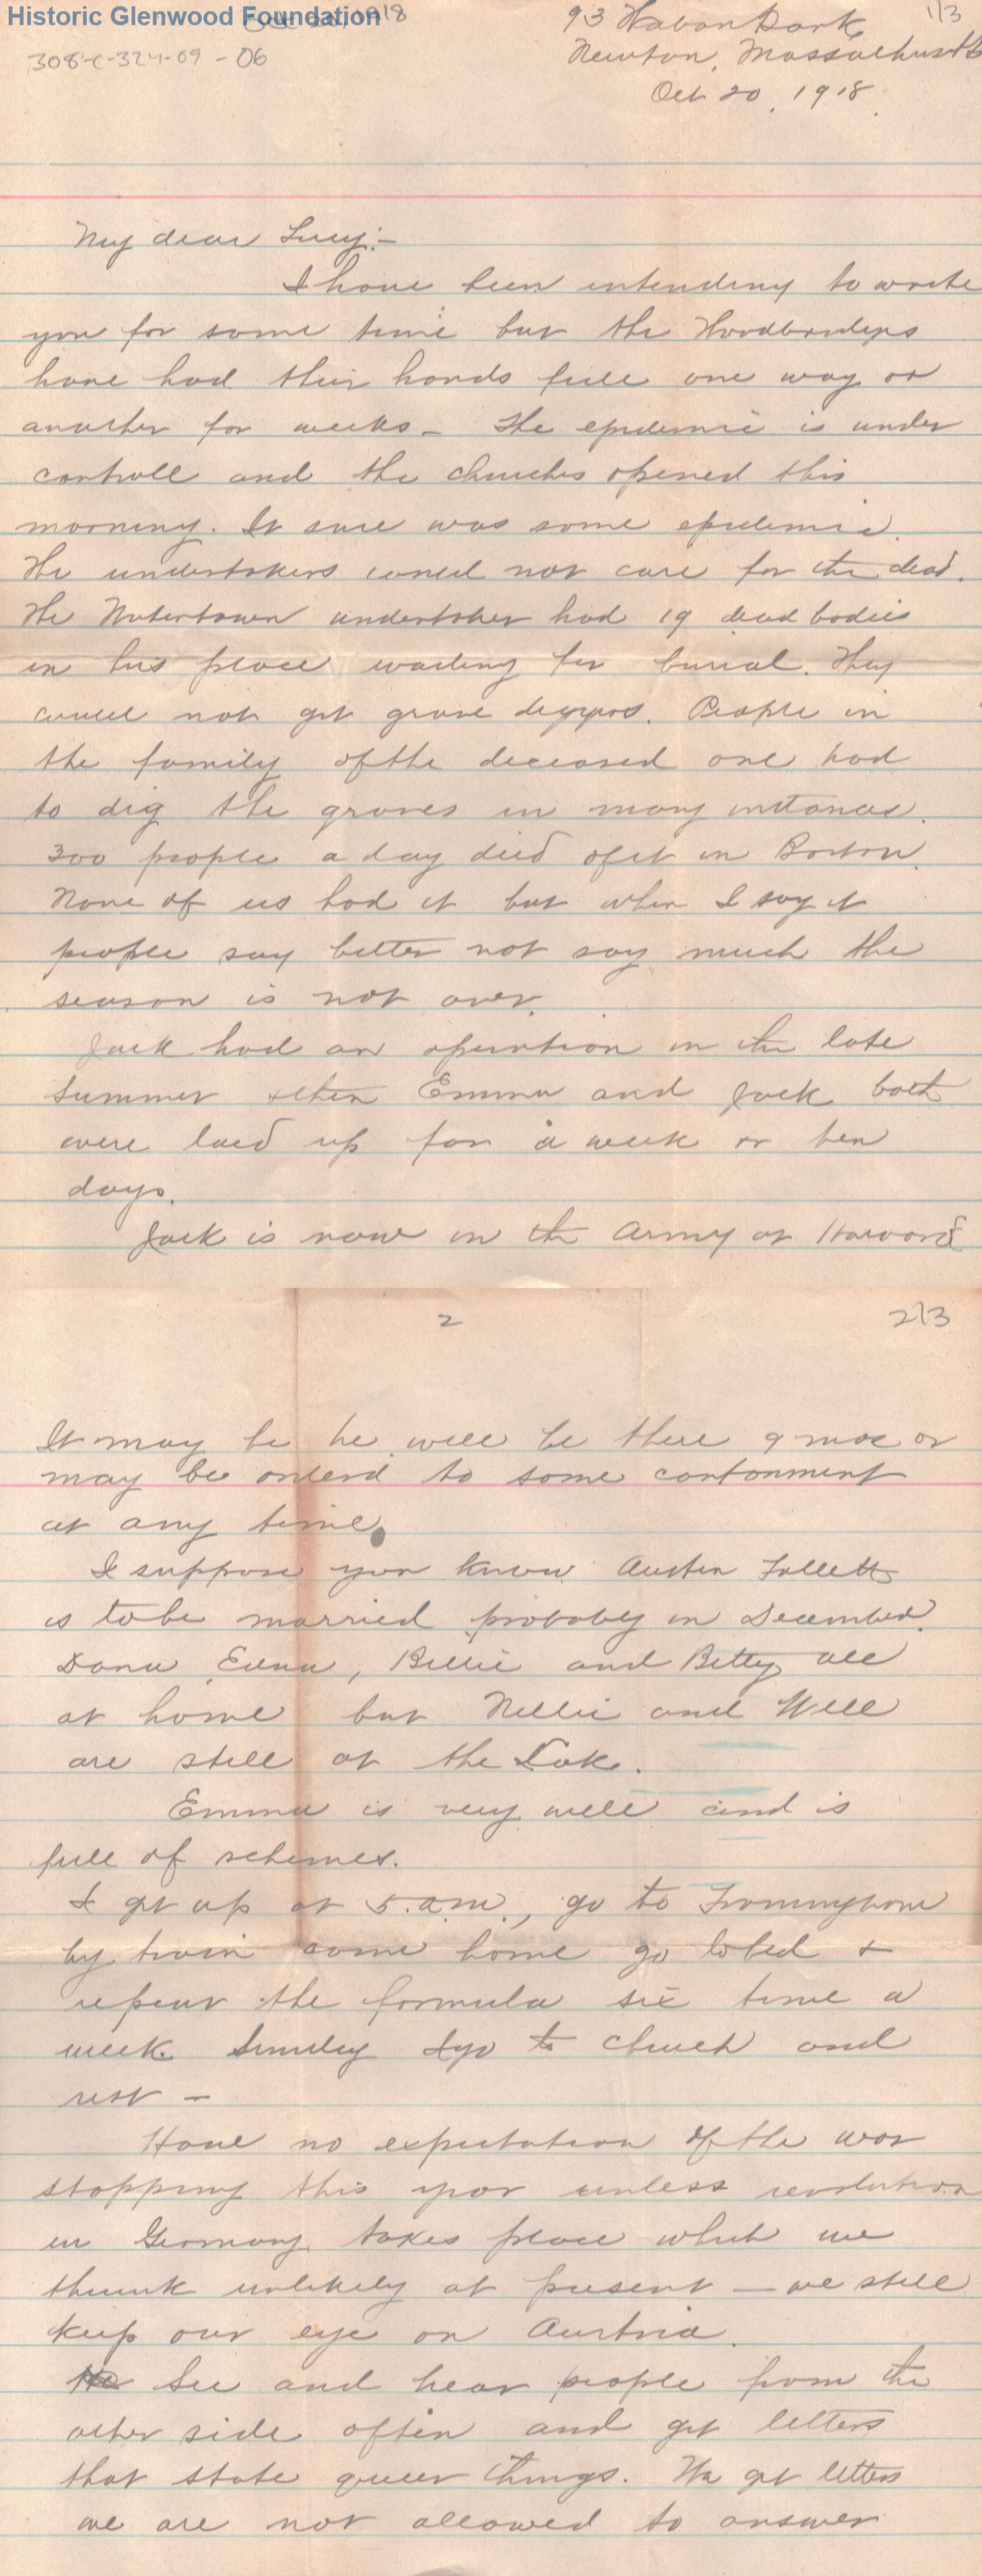 Historic Glenwood Foundation
308-C-324-09-06
1/3
93 Waban Park
Newton, Massachusetts
Oct 20, 1918.
My dear Lucy:-
I have been intending to write
you for some time but the Woodbridges
have had their hands full one way or
another for weeks- The epidemic is under
controll and the churches opened this
morning. It sure was some epidemic.
The undertakers could not care for the dead.
The Watertown undertaker had 19 dead bodies
in his place waiting for burial. They
could not get grave diggers. People in
the family of the deceased one had
to dig the graves in many instances.
300 people a day died of it in Boston.
None of us had it but when I say it
people say better not say much the
season is not over.
Jack had an operation in the late
summer when Emma and Jack both
were laid up for a week or ten
days.
Jack is now in the Army at Harvard
2
2/3
It may be he will be there 9 mos or
may be orderd to some cantonment
at any time.
I suppose you know Austin Follett
is to be married probably in December.
Dana, Edna, Billie and Betty all
at home but Nellie and Will
are still at the Lake.
Emma is very well and is
full of schemes.
I get up at 5. a.m., go to Framingham
by train come home go to bed +
repeat the formula six time a
week. Sunday I go to church and
rest -
Have no expectation of the war
stopping this year unless revolution
in Germany takes place which we
think unlikely at present - we still
keep our eye on Austria.
See and hear people from the
other side often and get letters
that state queer things. We get letters
we are not allowed to answer